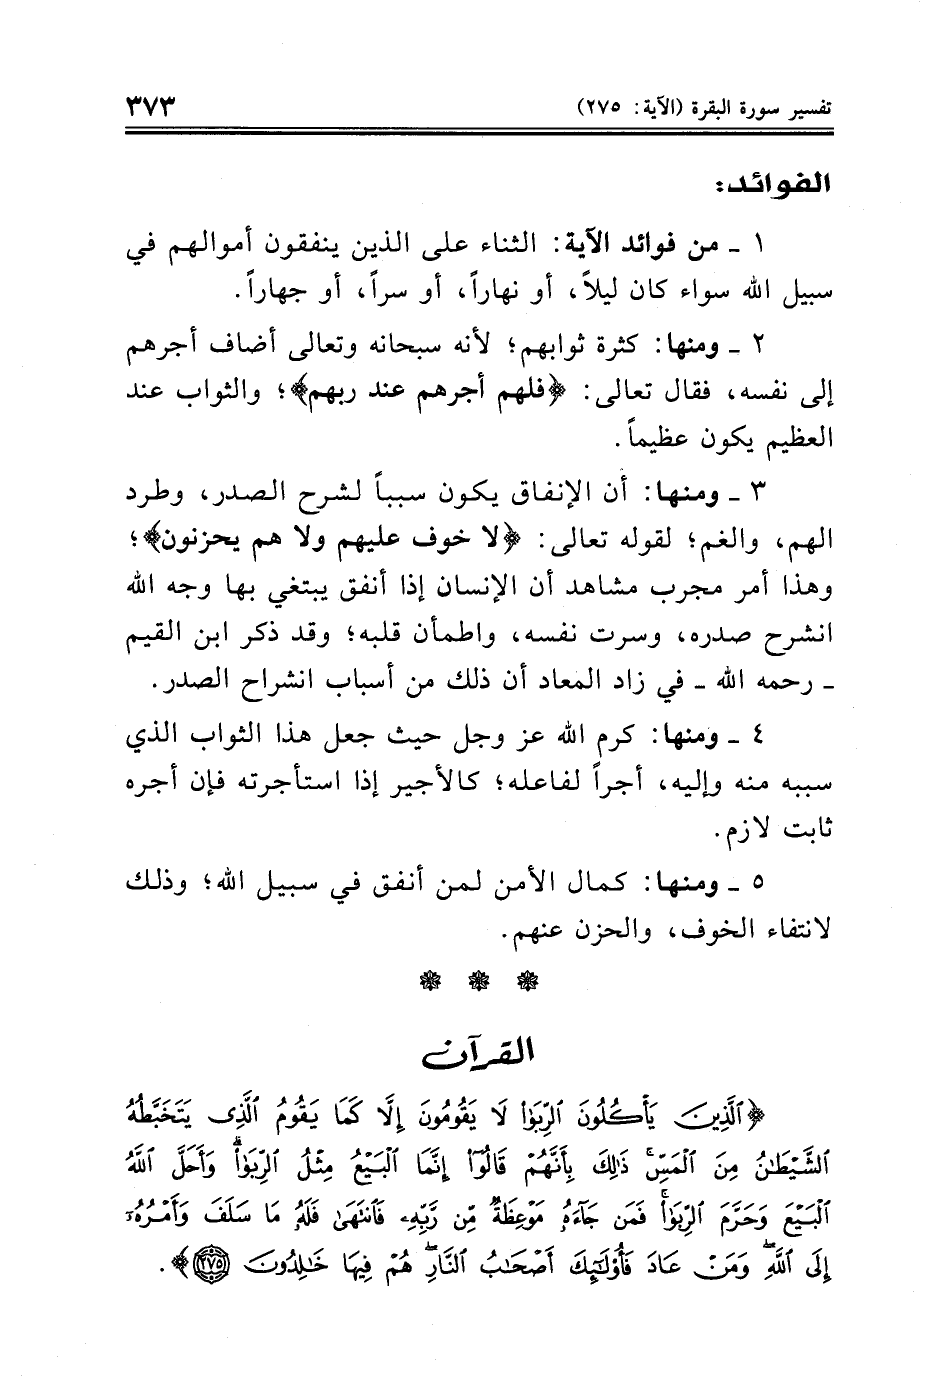 تفسير سورة البقرة (الآية: ٢٧٥) ٣٧٣
الفوائد:
١ ـ من فوائد الآية: الثناء على الذين ينفقون أموالهم في
سبيل الله سواء كان ليلاً، أو نهاراً، أو سراً، أو جهاراً.
٢ ـ ومنها: كثرة ثوابهم؛ لأنه سبحانه وتعالى أضاف أجرهم
إلى نفسه، فقال تعالى: ﴿فلهم أجرهم عند ربهم﴾؛ والثواب عند
العظيم يكون عظيماً.
٣ ـ ومنها: أن الإنفاق يكون سبباً لشرح الصدر، وطرد
الهم، والغم؛ لقوله تعالى: ﴿لا خوف عليهم ولا هم يحزنون﴾؛
وهذا أمر مجرب مشاهد أن الإنسان إذا أنفق يبتغي بها وجه الله
انشرح صدره، وسرت نفسه، واطمأن قلبه؛ وقد ذكر ابن القيم
ـ رحمه الله ـ في زاد المعاد أن ذلك من أسباب انشراح الصدر.
٤ ـ ومنها: كرم الله عز وجل حيث جعل هذا الثواب الذي
سببه منه وإليه، أجراً لفاعله؛ كالأجير إذا استأجرته فإن أجره
ثابت لازم.
٥ ـ ومنها: كمال الأمن لمن أنفق في سبيل الله؛ وذلك
لانتفاء الخوف، والحزن عنهم.
القرآن
﴿ٱلَّذِينَ يَأۡكُلُونَ ٱلرِّبَوٰاْ لَا يَقُومُونَ إِلَّا كَمَا يَقُومُ ٱلَّذِي يَتَخَبَّطُهُ
ٱلشَّيۡطَٰنُ مِنَ ٱلۡمَسِّۚ ذَٰلِكَ بِأَنَّهُمۡ قَالُوٓاْ إِنَّمَا ٱلۡبَيۡعُ مِثۡلُ ٱلرِّبَوٰاْۗ وَأَحَلَّ ٱللَّهُ
ٱلۡبَيۡعَ وَحَرَّمَ ٱلرِّبَوٰاْۚ فَمَن جَآءَهُۥ مَوۡعِظَةٞ مِّن رَّبِّهِۦ فَٱنتَهَىٰ فَلَهُۥ مَا سَلَفَ وَأَمۡرُهُۥٓ
إِلَى ٱللَّهِۖ وَمَنۡ عَادَ فَأُوْلَٰٓئِكَ أَصۡحَٰبُ ٱلنَّارِۖ هُمۡ فِيهَا خَٰلِدُونَ ٢٧٥﴾.